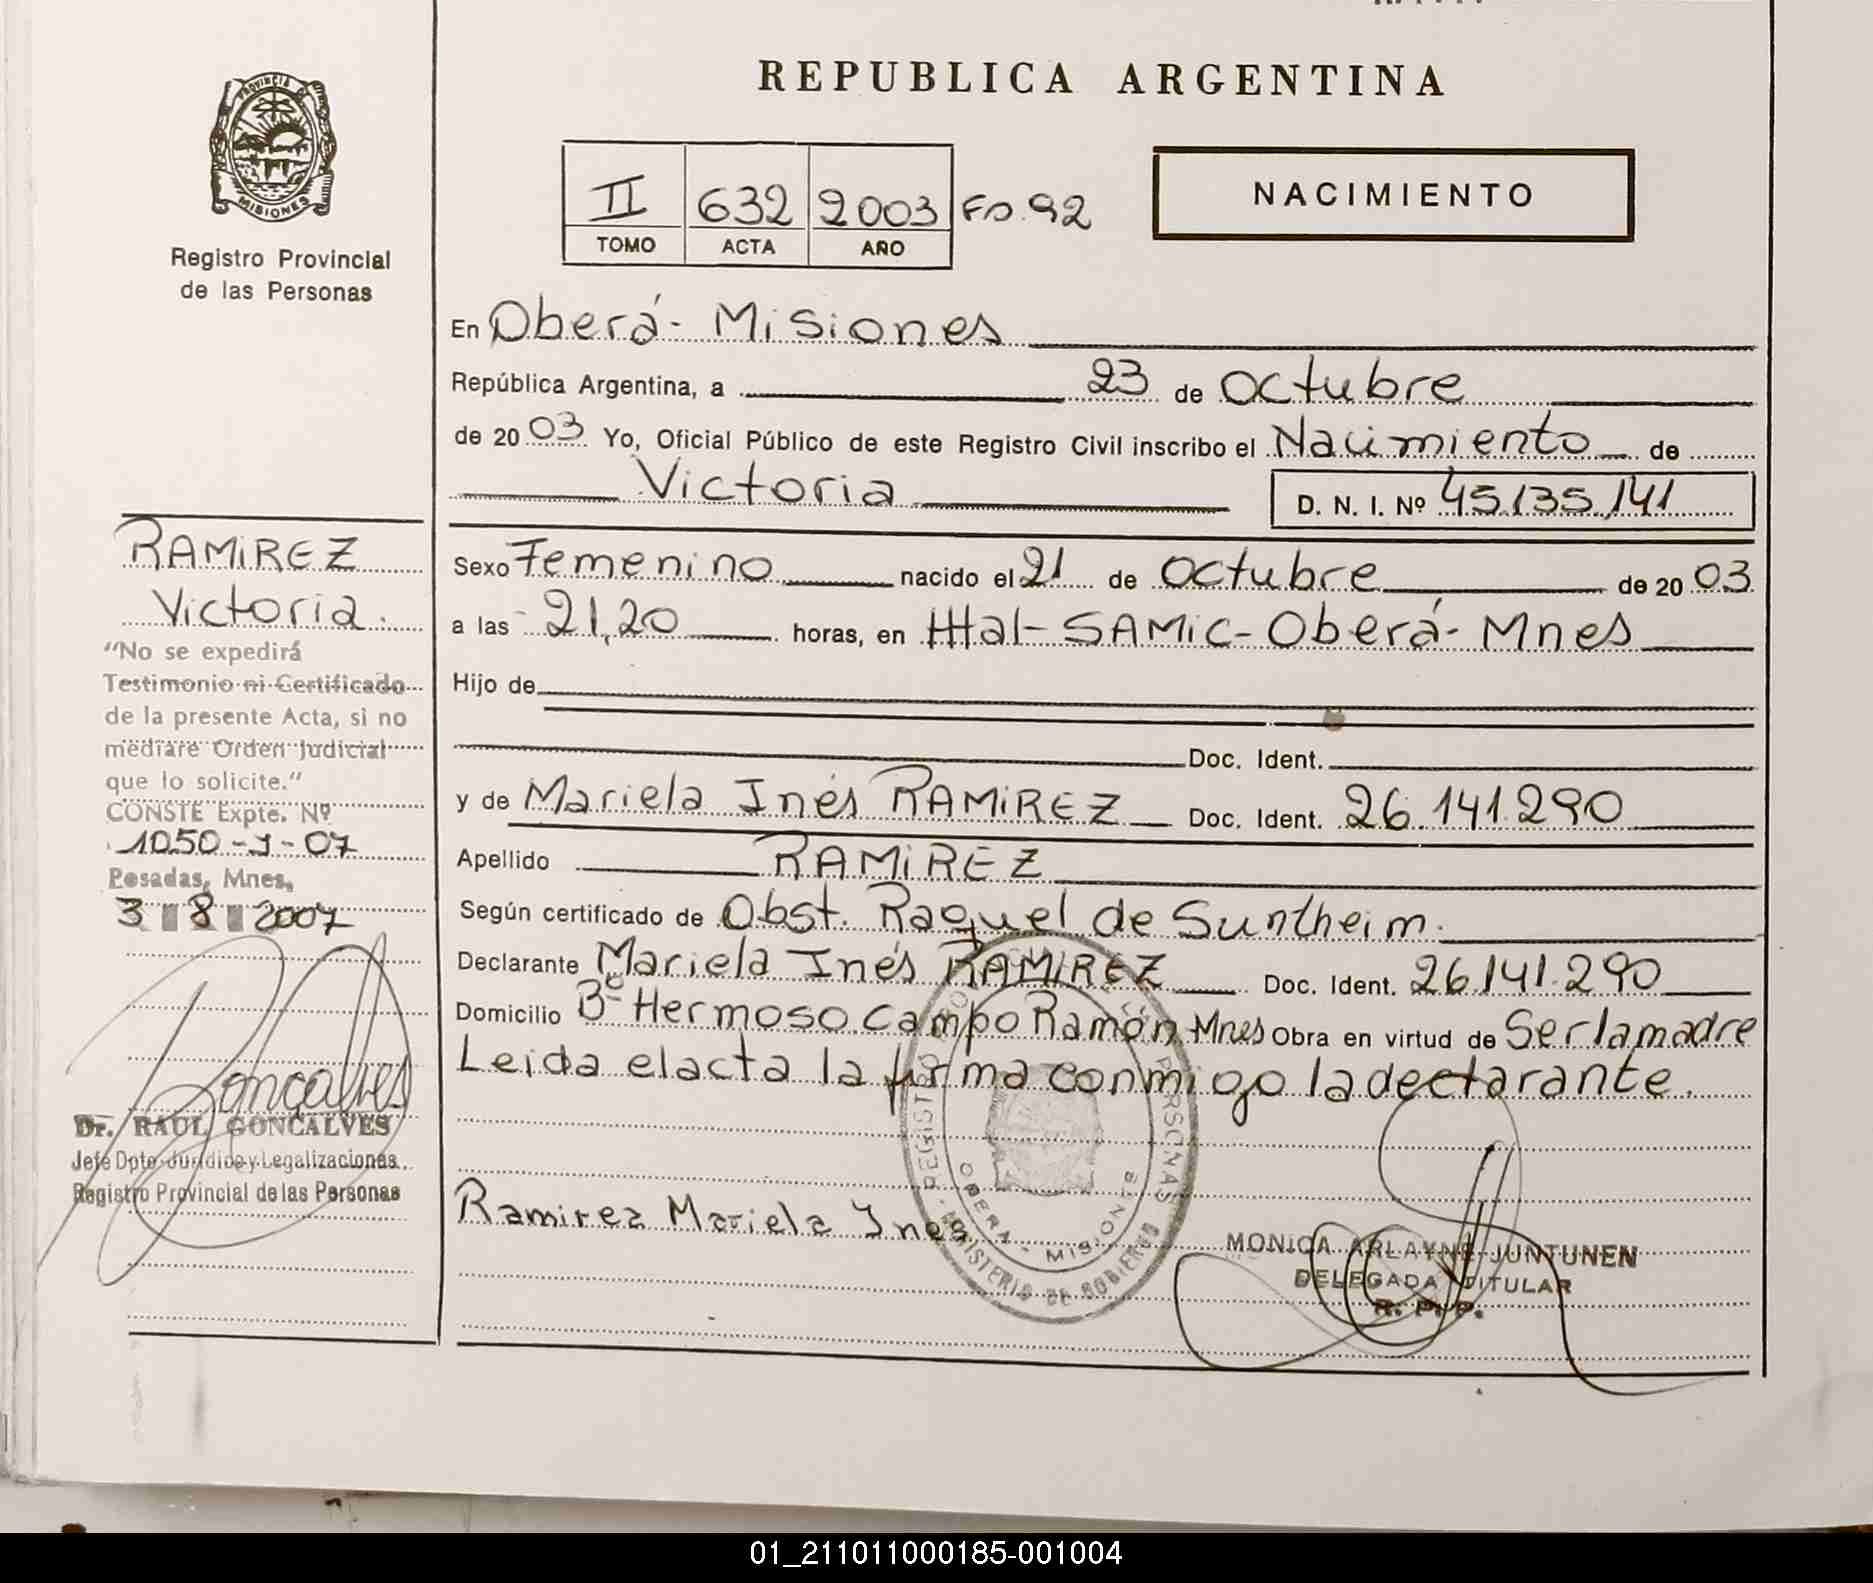 REPUBLICA ARGENTINA
PROVINCIA DE
MISIONES
Registro Provincial
de las Personas
II 632 2003 Fo. 92
TOMO ACTA AÑO
NACIMIENTO
En Oberá - Misiones
República Argentina, a 23 de Octubre
de 2003 Yo, Oficial Público de este Registro Civil inscribo el Nacimiento de
Victoria
D. N. I. Nº 45.135.141
Sexo Femenino nacido el 21 de Octubre de 2003
a las 21,20 horas, en Htal - SAMIC - Oberá - Mnes
Hijo de
Doc. Ident.
y de Mariela Inés RAMIREZ Doc. Ident. 26.141.290
Apellido RAMIREZ
Según certificado de Obst. Raquel de Suntheim.
Declarante Mariela Inés RAMIREZ Doc. Ident. 26.141.290
Domicilio Bº Hermoso Campo Ramón Mnes Obra en virtud de Ser la madre
Leida el acta la firma conmigo la declarante.
Ramirez Mariela Ines
REGISTRO PERSONAS
OBERA - MISIONES
MINISTERIO DE GOBIERNO
MONICA ARLAYNE JUNTUNEN
DELEGADA TITULAR
R. P. P.
RAMIREZ
Victoria.
"No se expedirá
Testimonio ni Certificado
de la presente Acta, si no
mediare Orden Judicial
que lo solicite."
CONSTE Expte. Nº
1050 - J - 07
Posadas, Mnes,
3 8 2007
Goncalves
Dr. RAUL GONCALVES
Jefe Dpto. Jurídico y Legalizaciones
Registro Provincial de las Personas
01_211011000185-001004